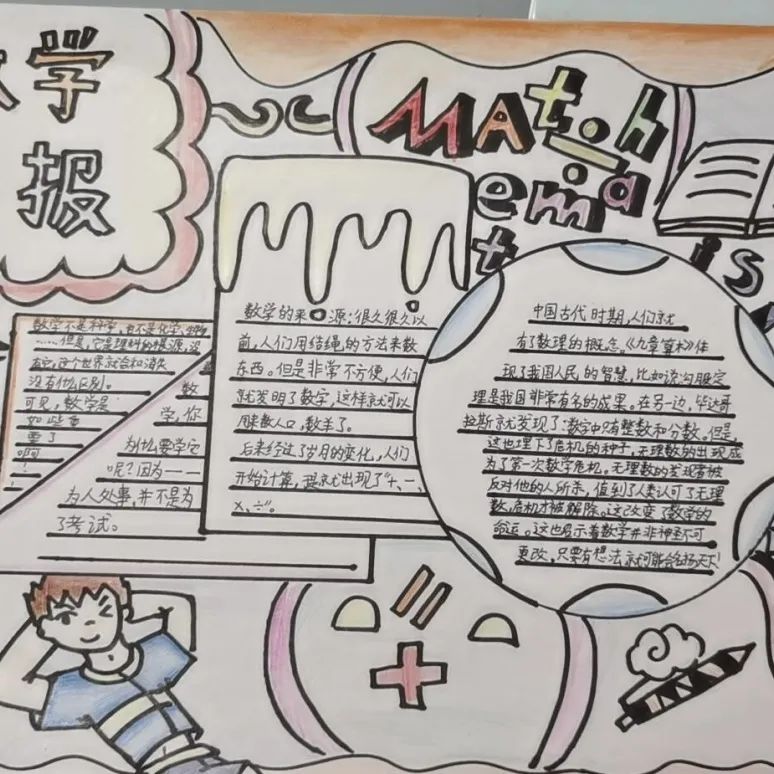 数学
报
MATh
ema
t is
数学不是科学,也不是化学、生物
……但是,它是理科的根源,没
有它,这个世界就会和消失
没有什么区别。
可见,数学是
如此重
要了
啊
!
数
学,你
为什么要学它
呢?因为——
为人处事,并不是为
了考试。
数学的来源:很久很久以
前,人们用结绳的方法来数
东西。但是非常不方便,人们
就发明了数学,这样就可以
用来数人口,数羊了。
后来经过了岁月的变化,人们
开始计算,提就出现了"+、一、
×、÷"。
中国古代时期,人们就
有了数理的概念。《九章算术》体
现了我国人民的智慧,比如说沟股定
理是我国非常有名的成果。在另一边,毕达哥
拉斯就发现了:数学中只有整数和分数。但是,
这也埋下了危机的种子,无理数的出现成
为了第一次数学危机。无理数的发现者被
反对他的人所杀,值到了人类认可了无理
数,危机才被解除。这改变了数学的
命运。这也启示着数学并非神圣不可
更改,只要有想法就可能会名扬天下!